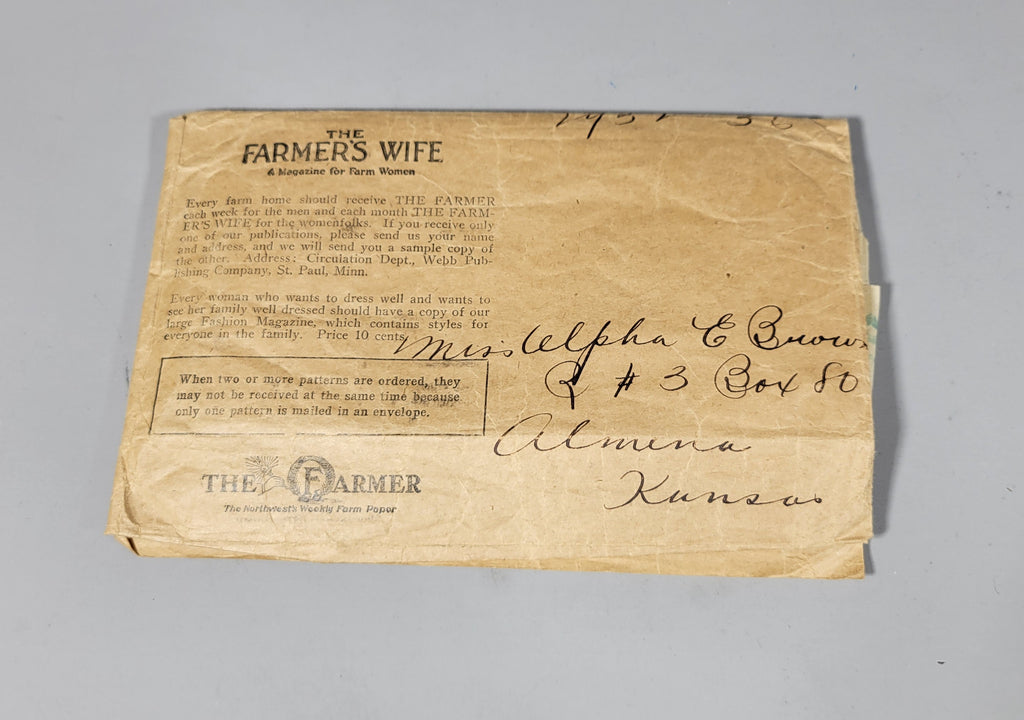 THE
FARMER'S WIFE
A Magazine for Farm Women
Every farm home should receive THE FARMER
each week for the men and each month THE FARM-
ER'S WIFE for the womenfolks. If you receive only
one of our publications, please send us your name
and address, and we will send you a sample copy of
the other. Address: Circulation Dept., Webb Pub-
lishing Company, St. Paul, Minn.
Every woman who wants to dress well and wants to
see her family well dressed should have a copy of our
large Fashion Magazine, which contains styles for
everyone in the family. Price 10 cents.
Miss Alpha E Brown
R # 3 Box 80
Almena
Kansas
When two or more patterns are ordered, they
may not be received at the same time because
only one pattern is mailed in an envelope.
THE FARMER
The Northwest's Weekly Farm Paper